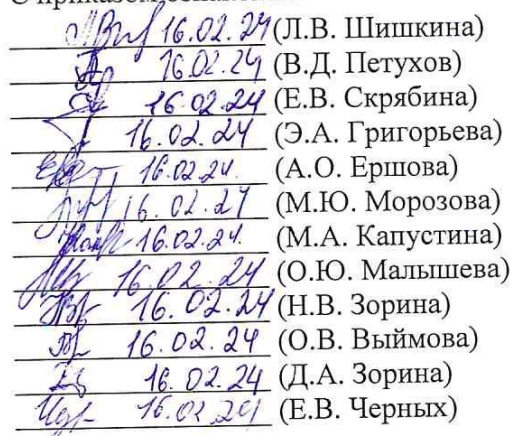 16.02.24 (Л.В. Шишкина)
16.02.24 (В.Д. Петухов)
16.02.24 (Е.В. Скрябина)
16.02.24 (Э.А. Григорьева)
16.02.24. (А.О. Ершова)
16.02.24 (М.Ю. Морозова)
16.02.24. (М.А. Капустина)
16.02.24 (О.Ю. Малышева)
16.02.24 (Н.В. Зорина)
16.02.24 (О.В. Выймова)
16.02.24 (Д.А. Зорина)
16.02.24 (Е.В. Черных)